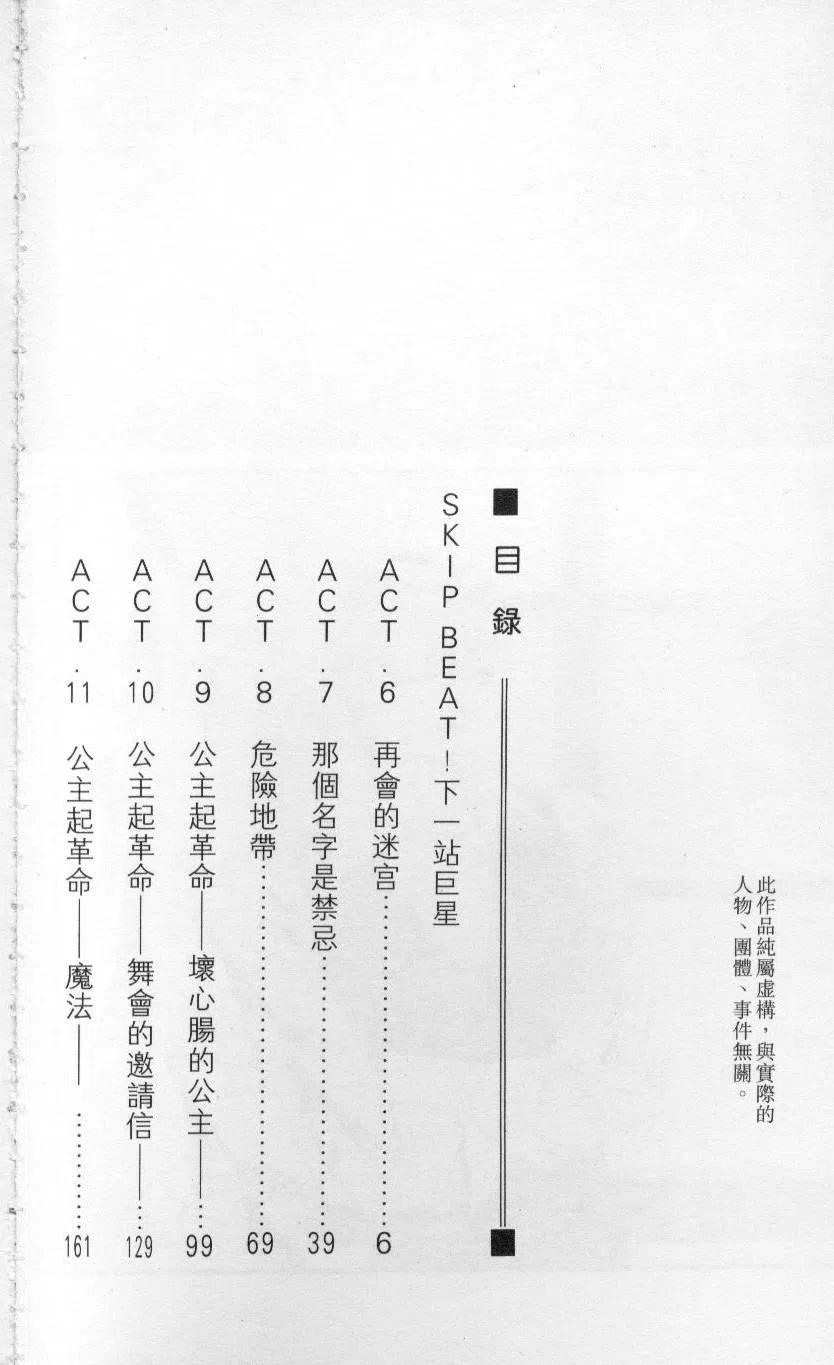 此作品純屬虛構，與實際的
人物、團體、事件無關。
■ 目錄 ■
SKIP BEAT！下一站巨星
ACT．6 再會的迷宮…………6
ACT．7 那個名字是禁忌…………39
ACT．8 危險地帶…………69
ACT．9 公主起革命——壞心腸的公主——…99
ACT．10 公主起革命——舞會的邀請信——…129
ACT．11 公主起革命——魔法——…………161